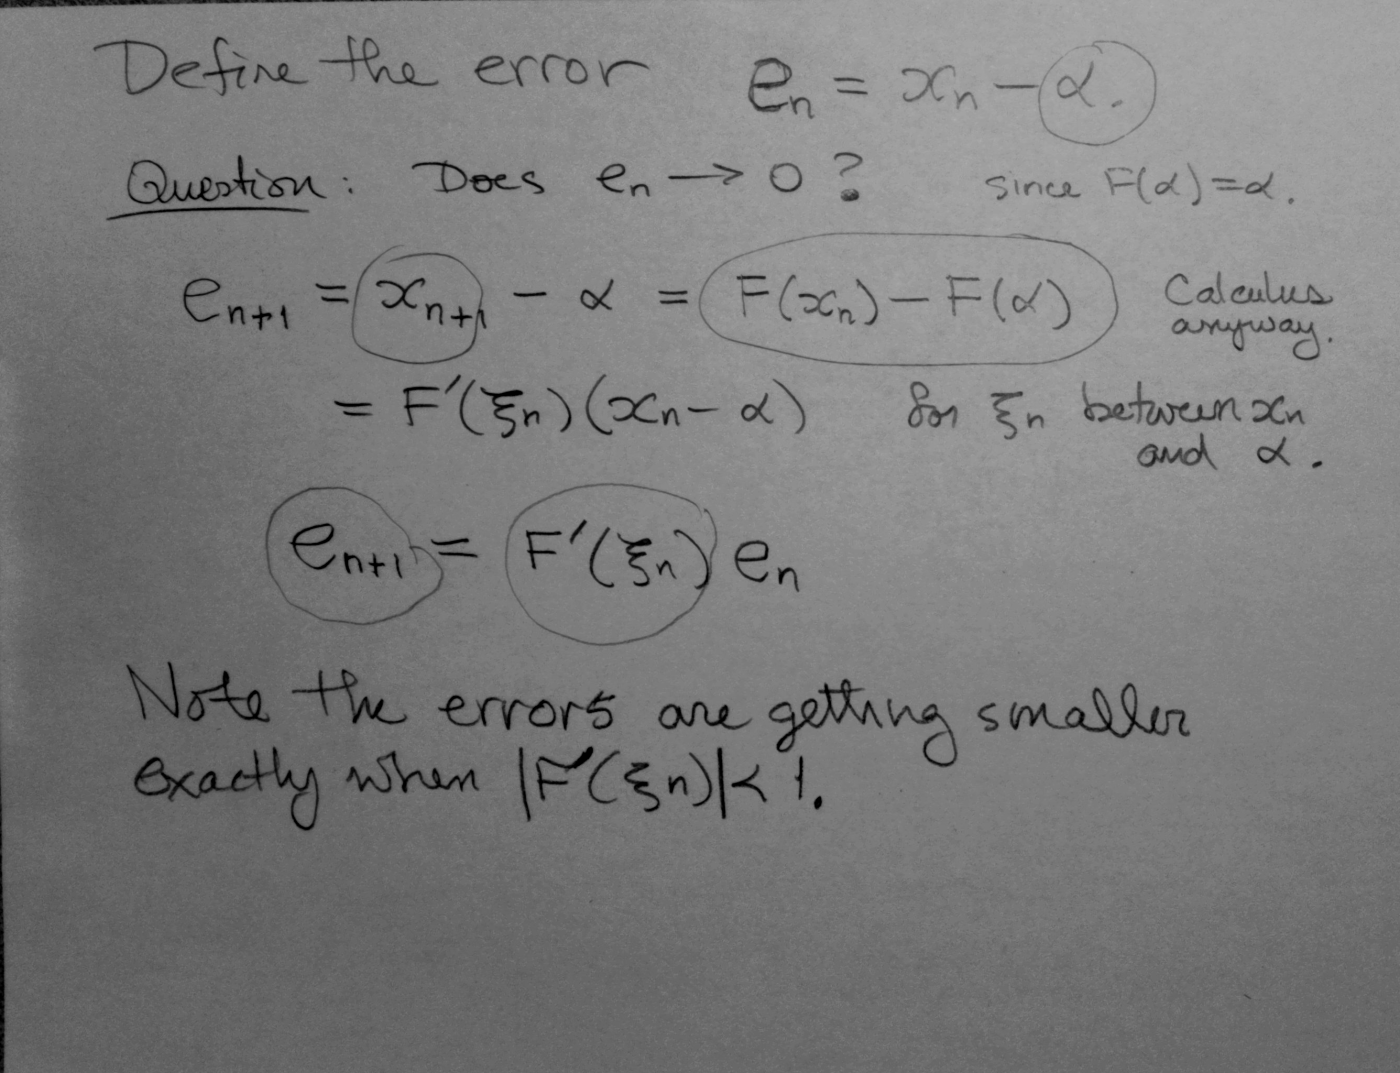 Define the error eₙ = xₙ − α.
Question: Does eₙ → 0 ? since F(α)=α.
eₙ₊₁ = xₙ₊₁ − α = F(xₙ) − F(α) Calculus
anyway.
= F′(ξₙ)(xₙ − α) for ξₙ between xₙ
and α.
eₙ₊₁ = F′(ξₙ) eₙ
Note the errors are getting smaller
exactly when |F′(ξₙ)| < 1.